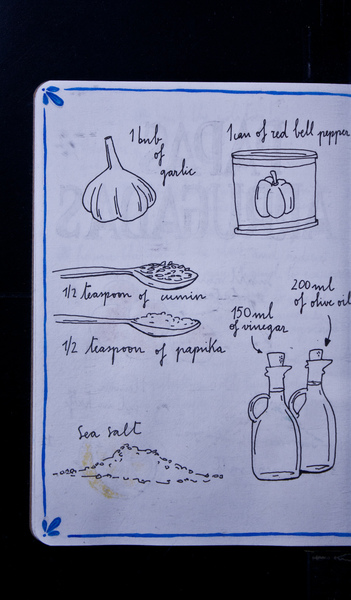 1 bulb
of
garlic
1 can of red bell pepper
1/2 teaspoon of cumin
1/2 teaspoon of paprika
150 ml
of vinegar
200 ml
of olive oil
sea salt